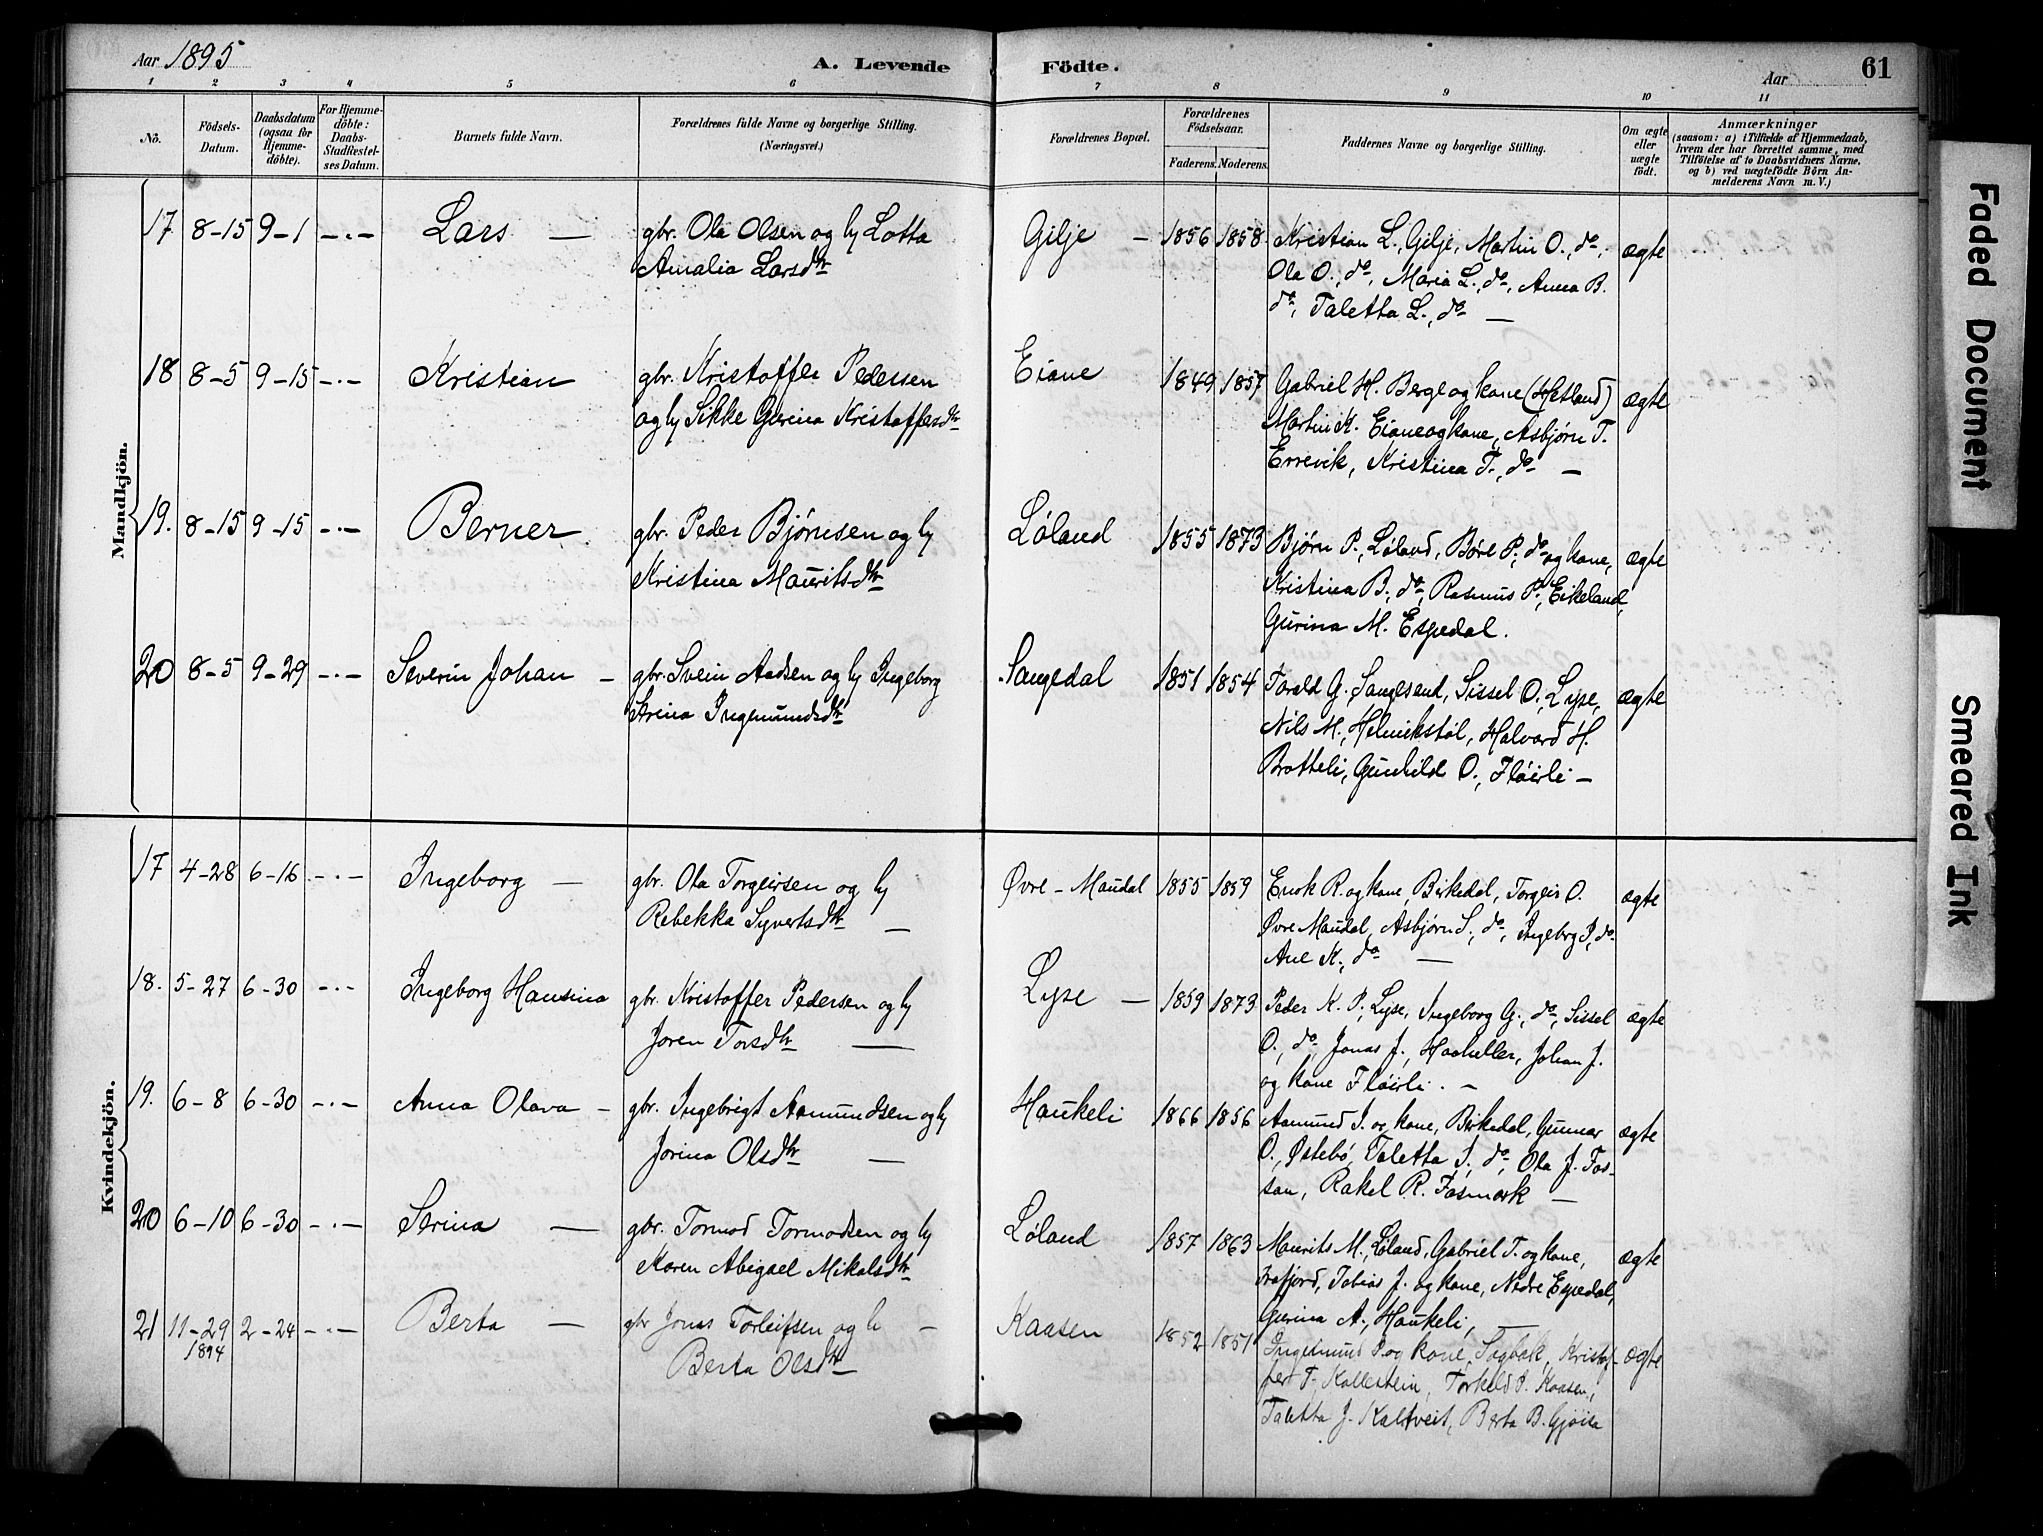 Aar 1895
A. Levende Födte.
Aar
61
1 2 3 4 5 6 7 8 9 10 11
No.
Födsels-Datum.
Daabsdatum (ogsaa for Hjemme-döbte).
For Hjemme-döbte: Daabs-Stadfæstel-ses Datum.
Barnets fulde Navn.
Forældrenes fulde Navne og borgerlige Stilling.
(Næringsvei.)
Forældrenes Bopæl.
Forældrenes Födselsaar.
Faderens. Moderens.
Faddernes Navne og borgerlige Stilling.
Om ægte eller uægte födt.
Anmærkninger
(saasom: a) i Tilfælde af Hjemmedaab,
hvem der har forrettet samme, med
Tilföielse af to Daabsvidners Navne,
og b) ved uægtefödte Börn An-
melderens Navn m. V.)
Mandkjön.
17 8-15 9-1 -.- Lars — gbr. Ola Olsen og h Lotta Gilje — 1856 1858 Kristian L., Gilje, Martin O., do, ægte
Amalia Larsdtr Ola O., do, Maria L., do, Anna B.
do, Taletta L., do —
18 8-5 9-15 -.- Kristian gbr. Kristoffer Pedersen Eiane 1849 1857 Gabriel H. Berge og kone (Hetland) ægte
og h Sikke Gurina Kristoffersdtr Martin K. Eiane og kone, Asbjørn T.
Errevik, Kristina T., do —
19. 8-15 9-15 -.- Berner gbr. Peder Bjørnsen og h Løland 1855 1873 Bjørn P., Løland, Børe P., do og kone, ægte
Kristina Mauritsdtr Kristina B., do, Rasmus P., Eikeland,
Gurina M. Espedal.
20 8-5 9-29 -.- Severin Johan — gbr. Svein Aadsen og h Ingeborg Sangedal 1851 1854 Torald G., Sangesand, Sissel O., Lyse, ægte
Serina Ingemundsdtr Nils M., Helmikstøl, Halvard H.
Bratteli, Gunhild O., Fløirli —
Kvindekjön.
17 4-28 6-16 -.- Ingeborg — gbr. Ola Torgeirsen og h Øvre-Maudal 1855 1859 Enok R. og kone, Birkedal, Torgeir O. ægte
Rebekka Syvertsdtr — Øvre Maudal, Asbjørn S., do, Ingebrg S., do
Ane K., do —
18. 5-27 6-30 -.- Ingeborg Hansina gbr. Kristoffer Pedersen og h Lyse — 1859 1873 Peder K. P., Lyse, Ingeborg G., do, Sissel ægte
Joren Torsdtr — O., do, Jonas J., Haaheller, Johan J.
og kone Fløirli. —
19. 6-8 6-30 -.- Anna Olava — gbr. Ingebrigt Aamundsen og h Haukeli 1866 1856 Aamund I. og kone, Birkedal, Gunnar ægte
Jorina Olsdtr — O., Østebø, Taletta I., do, Ola J. Fos-
san, Rakel R. Fosmark —
20 6-10 6-30 -.- Serina — gbr. Tormod Tormodsen og h Løland 1857 1863 Maurits M., Løland, Gabriel T. og kone, ægte
Karen Abigael Mikalsdtr Frafjord, Tobias J. og kone, Nedre Espedal,
Gurina A., Haukeli, —
21 11-29 2-24 -.- Berta — gbr Jonas Torleifsen og h — Kaasen 1852 1851 Ingemund P. og kone, Sagbak, Kristof- ægte
1894 Berta Olsdtr fer T. Kallestein, Torkeld P. Kaasen,
Taletta J. Kaltveit, Berta B. Gjøisa
Faded Document
Smeared Ink